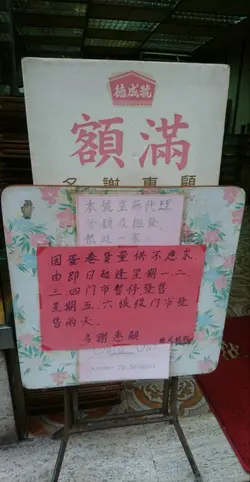 德成號
額滿
多謝惠顧
本號並無代理
分銷及批發
只此一家
因蛋卷貨量供不應求
由即日起逢星期一.二.
三.四門市暫停發售
星期五.六恢復門市發
售兩天.
多謝惠顧